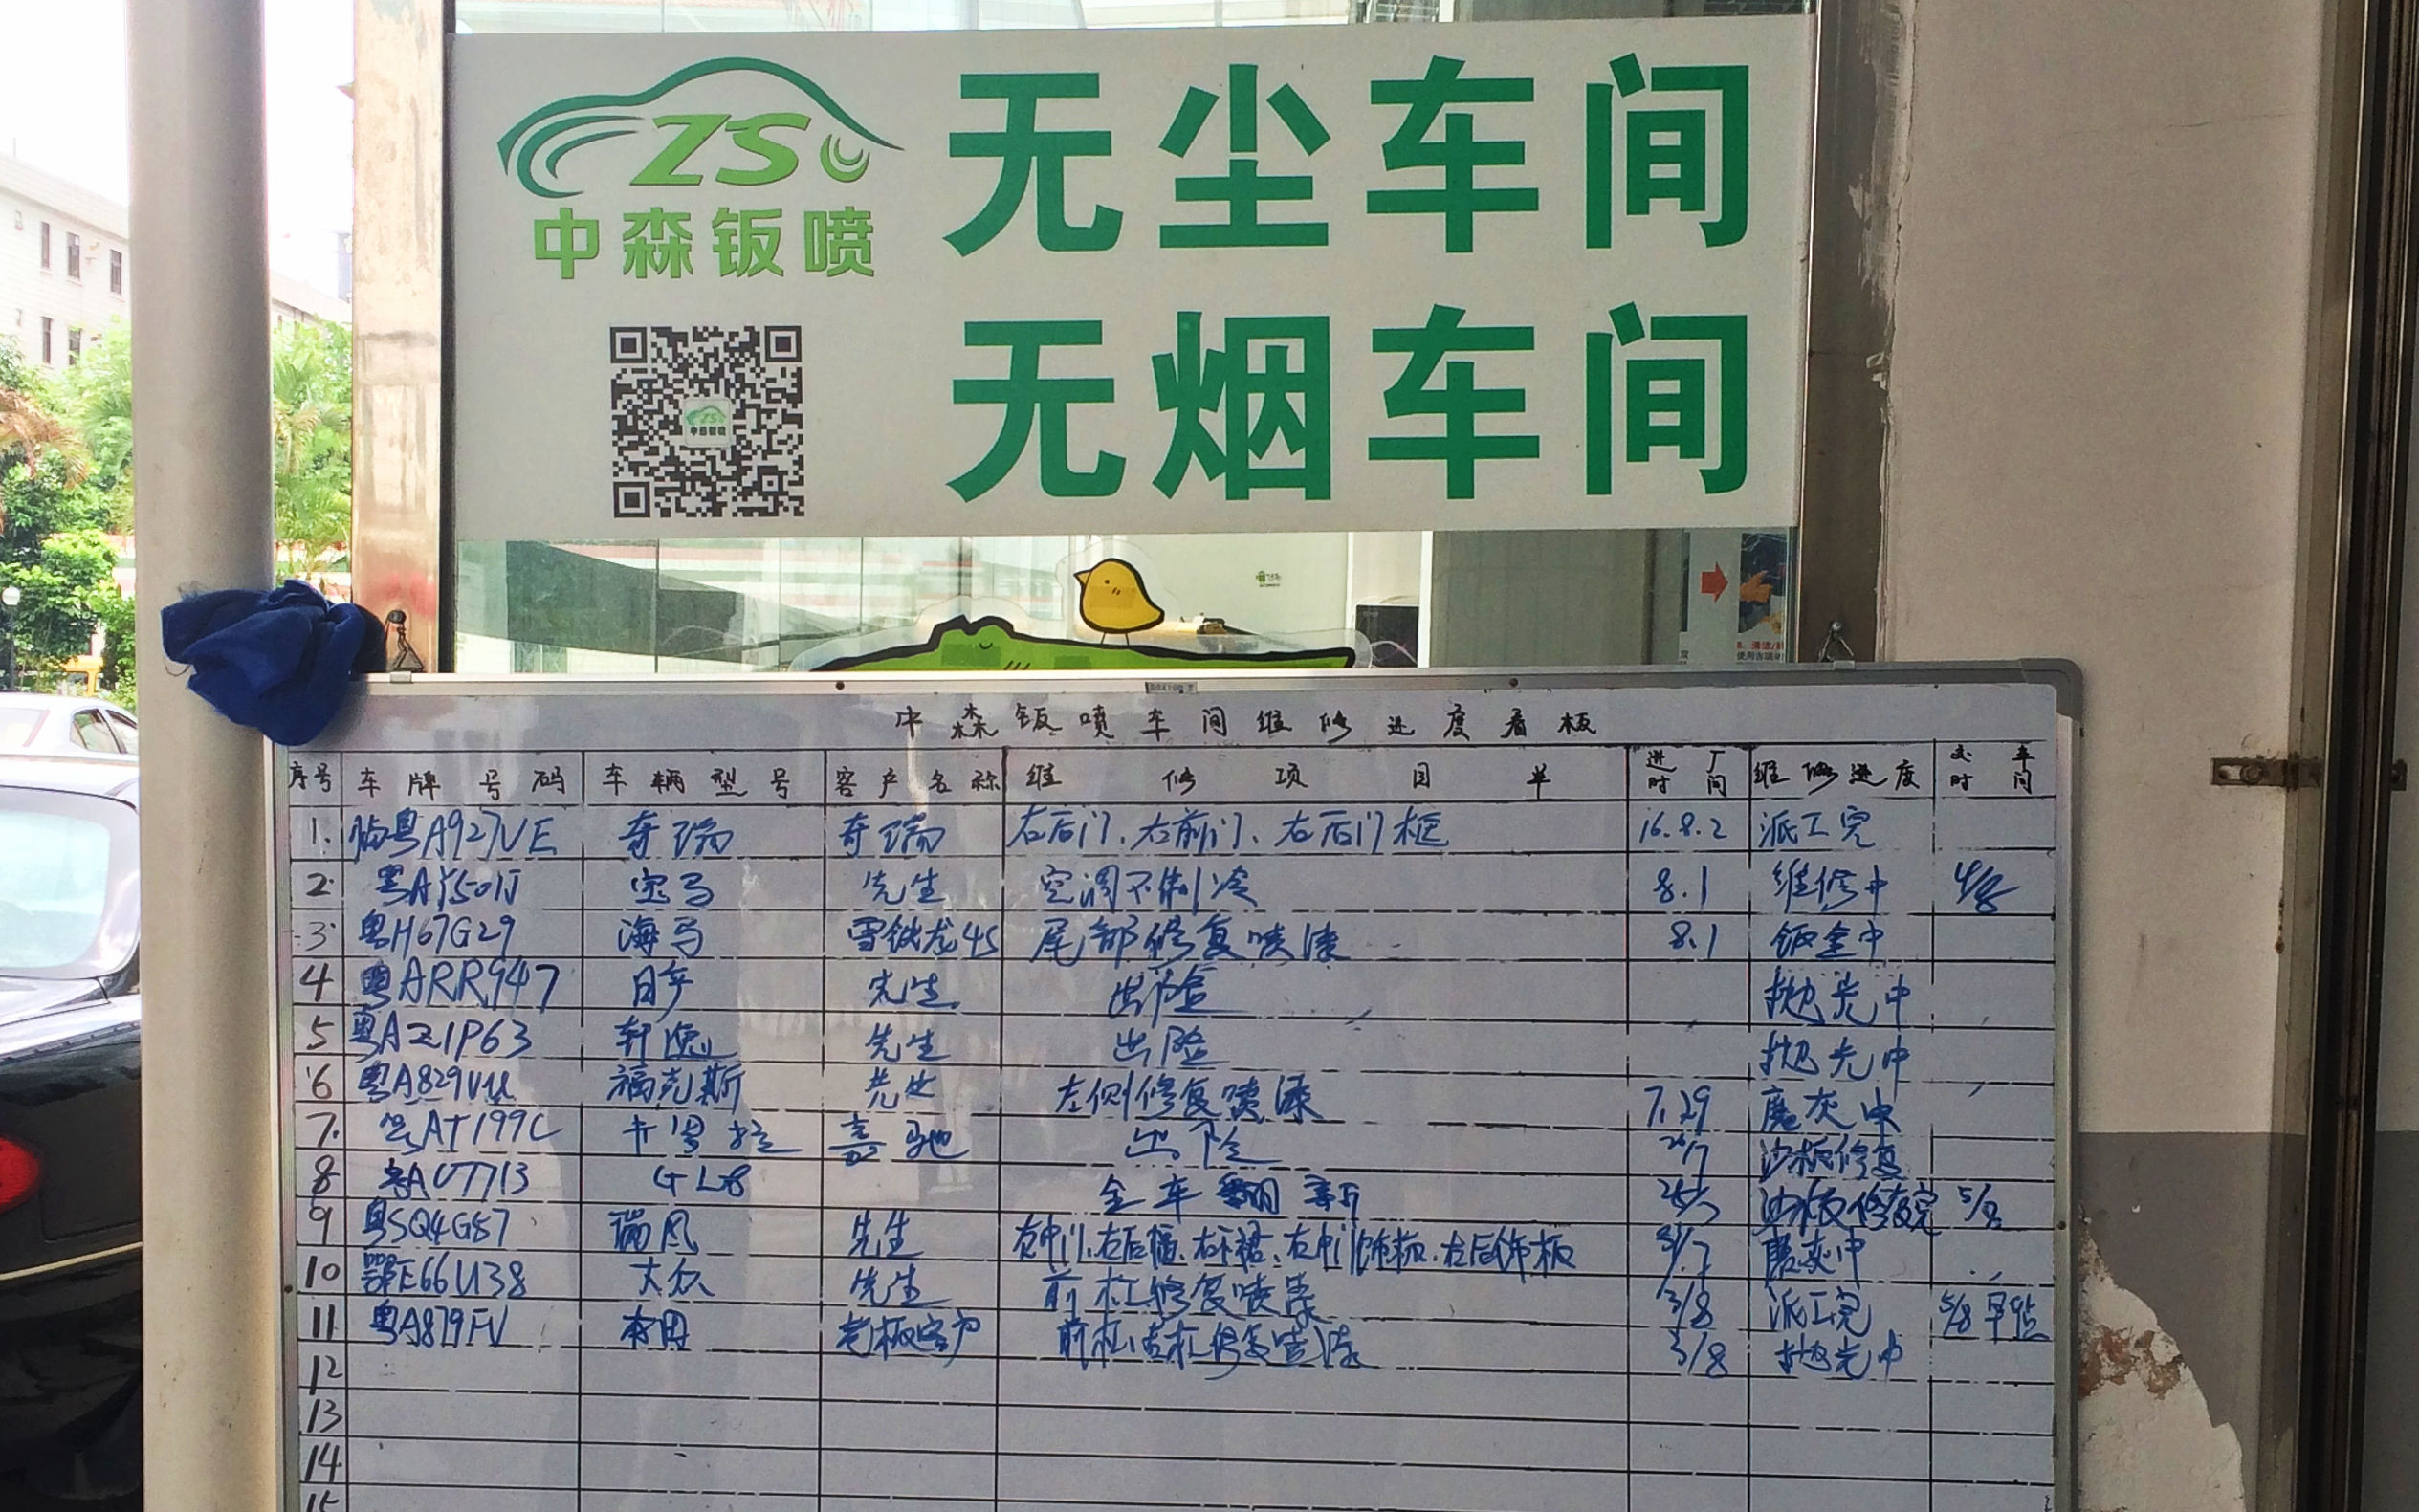 ZS
中森钣喷
无尘车间
无烟车间
中森钣喷车间维修进度看板
序号 车牌号码 车辆型号 客户名称 维修项目单 进厂时间 维修进度 交车时间
1. 临粤A927VE 奇瑞 奇瑞 右后门、右前门、右后门框 16.8.2 派工完
2 粤AY501J 宝马 先生 空调不制冷 8.1 维修中 4/8
3 粤H67G29 海马 雪铁龙4S 尾部修复喷漆 8.1 钣金中
4 粤ARR947 日产 先生 出险 抛光中
5 粤A21P63 轩逸 先生 出险 抛光中
6 粤A829VU 福克斯 先生 左侧修复喷漆 7.29 磨灰中
7. 粤AT199C 卡罗拉 嘉驰 出险 沙板修复
8 粤AUT713 GL8 全车翻新 沙板修复完 5/8
9 粤SQ4G87 瑞风 先生 右中门饰板、左后饰板 31/7 磨灰中
10 鄂E66U38 大众 先生 前杠修复喷漆 3/8 派工完 5/8早9点
11 粤A879FV 本田 老板客户 前杠后杠修复喷漆 3/8 抛光中
12
13
14
15